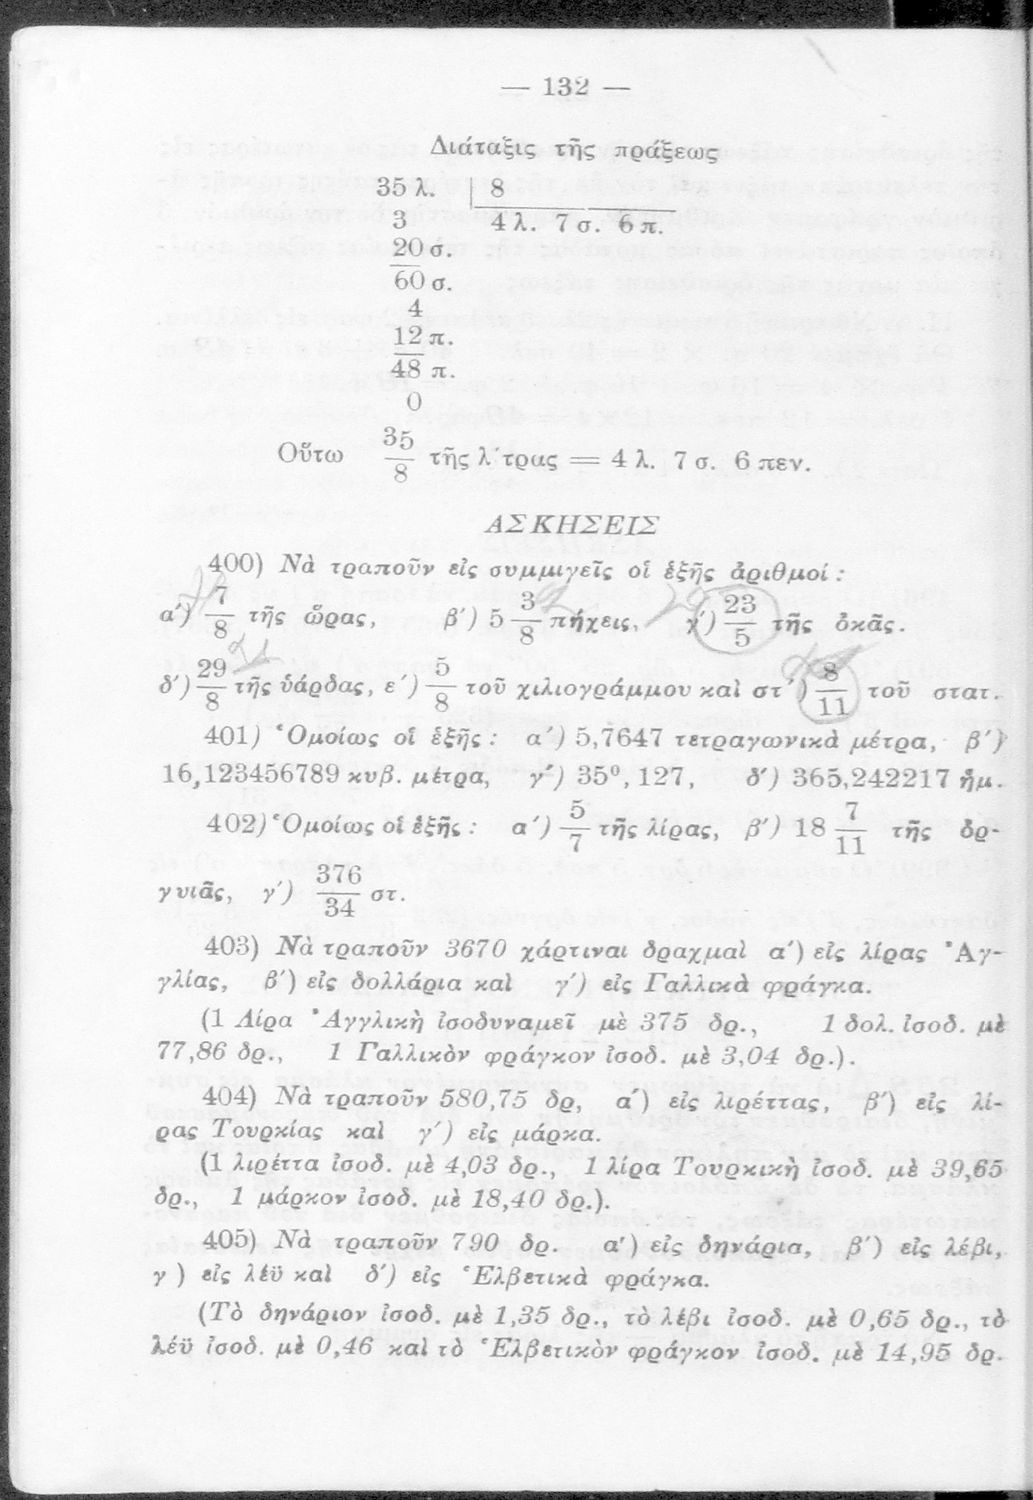 — 132 —
Διάταξις τῆς πράξεως
35 λ. | 8
3 4 λ. 7 σ. 6 π.
20 σ.
60 σ.
4
12 π.
48 π.
0
Οὕτω 35/8 τῆς λ΄τρας = 4 λ. 7 σ. 6 πεν.
ΑΣΚΗΣΕΙΣ
400) Νὰ τραποῦν εἰς συμμιγεῖς οἱ ἑξῆς ἀριθμοί :
α΄) 7/8 τῆς ὥρας, β΄) 5 3/8 πήχεις, γ΄) 23/5 τῆς ὀκᾶς.
δ΄) 29/8 τῆς ὑάρδας, ε΄) 5/8 τοῦ χιλιογράμμου καὶ στ΄) 8/11 τοῦ στατ.
401) Ὁμοίως οἱ ἑξῆς : α΄) 5,7647 τετραγωνικὰ μέτρα, β΄)
16,123456789 κυβ. μέτρα, γ΄) 35⁰, 127, δ΄) 365,242217 ἡμ.
402) Ὁμοίως οἱ ἑξῆς : α΄) 5/7 τῆς λίρας, β΄) 18 7/11 τῆς ὀρ-
γυιᾶς, γ΄) 376/34 στ.
403) Νὰ τραποῦν 3670 χάρτιναι δραχμαὶ α΄) εἰς λίρας Ἀγ-
γλίας, β΄) εἰς δολλάρια καὶ γ΄) εἰς Γαλλικὰ φράγκα.
(1 Λίρα Ἀγγλικὴ ἰσοδυναμεῖ μὲ 375 δρ., 1 δολ. ἰσοδ. μὲ
77,86 δρ., 1 Γαλλικὸν φράγκον ἰσοδ. μὲ 3,04 δρ.).
404) Νὰ τραποῦν 580,75 δρ, α΄) εἰς λιρέττας, β΄) εἰς λί-
ρας Τουρκίας καὶ γ΄) εἰς μάρκα.
(1 λιρέττα ἰσοδ. μὲ 4,03 δρ., 1 λίρα Τουρκικὴ ἰσοδ. μὲ 39,65
δρ., 1 μάρκον ἰσοδ. μὲ 18,40 δρ.).
405) Νὰ τραποῦν 790 δρ. α΄) εἰς δηνάρια, β΄) εἰς λέβι,
γ ) εἰς λέϋ καὶ δ΄) εἰς Ἑλβετικὰ φράγκα.
(Τὸ δηνάριον ἰσοδ. μὲ 1,35 δρ., τὸ λέβι ἰσοδ. μὲ 0,65 δρ., τὸ
λέϋ ἰσοδ. μὲ 0,46 καὶ τὸ Ἑλβετικὸν φράγκον ἰσοδ. μὲ 14,95 δρ.